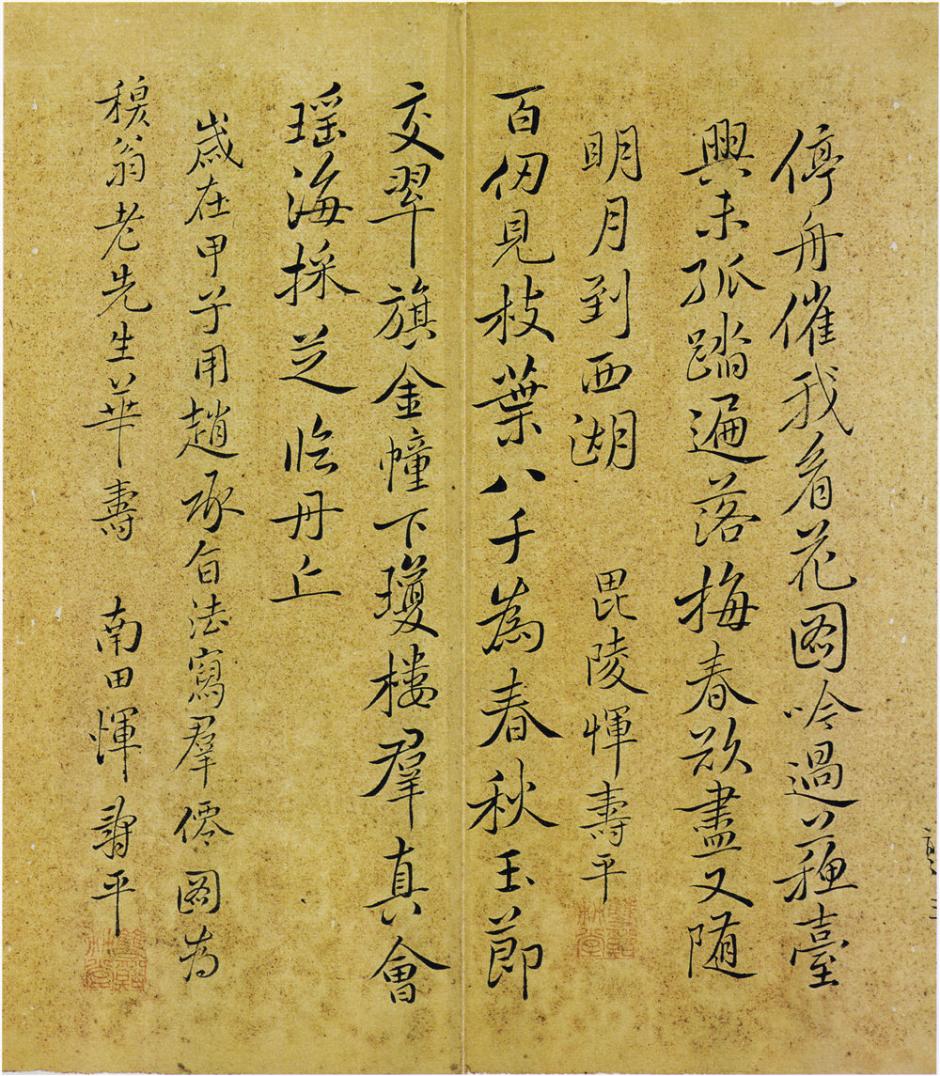 停舟催我看花圖吟過蘓臺
興未孤踏遍落梅春欲盡又随
明月到西湖　毘陵惲壽平
百仞見枝葉八千為春秋玉節
交翠旗金幢下瓊樓羣真會
瑶海採芝临丹丘
歲在甲子用趙承旨法寫羣僊圖為
翁老先生華壽　南田惲壽平